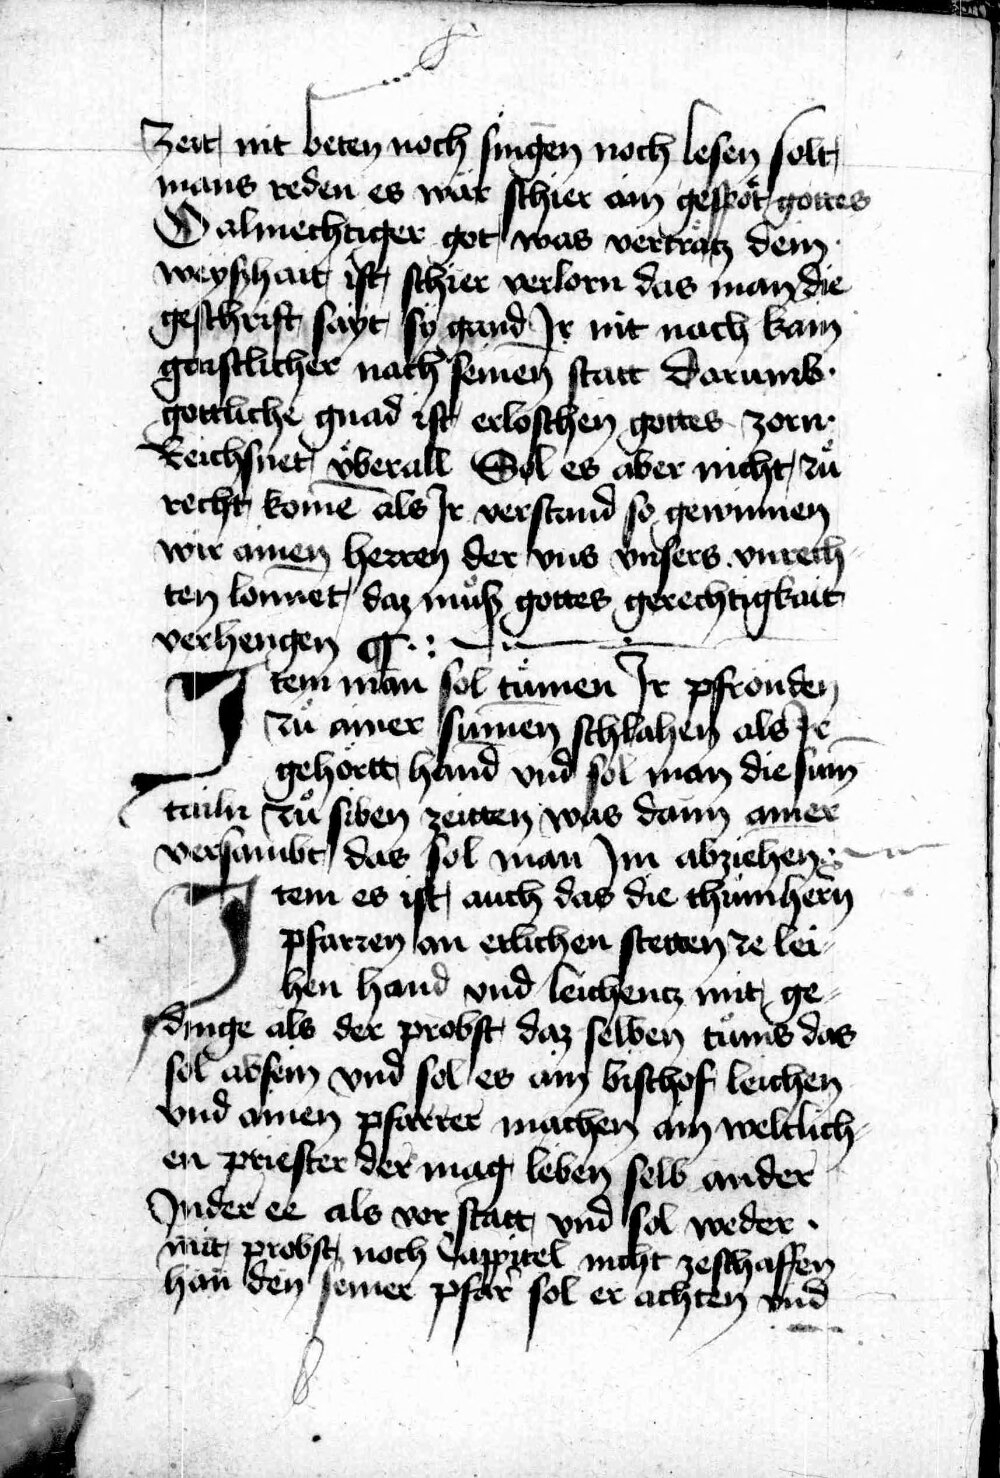 zeit nit beten noch singen noch lesen solt
mans reden es wär schier ain gespöt gottes
O almechtiger got was verträtz dein
weyßhait ist schier verlorn das man die
geschrift sayt sy gand Ir nit nach kain
gaistlicher nach seinen statt darumb
gottliche gnad ist erloschen gottes zorn
Reichsnet v̈berall Sol es aber nicht zuͦ
recht komē als Ir verstand so gewinnen
wir ainen herren der vns vnsers vnrech-
ten lonnet daz muͦß gottes gerechtigkait
verhengen ¶
Item man sol tuͦmen Ir pfronden
zuͦ ainer sum̄en schlahen als Ir
gehörtt hand vnd sol man die sum̄
tailn zuͦ siben zeitten was dann ainer
versambt das sol man Im abziehen
Item es ist auch das die thuͦmhern
pfarren an erlichen stetten ze lei-
hen hand vnd leichentz mit ge-
dinge als der probst daz selben tuͦms das
sol absein vnd sol es ain bischof leichen
vnd ainen pfarrer machen ain weltlich-
en priester der mag leben selb ander
Inder ee als vor statt vnd sol weder
mit probst noch Cappitel nicht zeschaffen
han den seiner pfarr sol er achten vnd